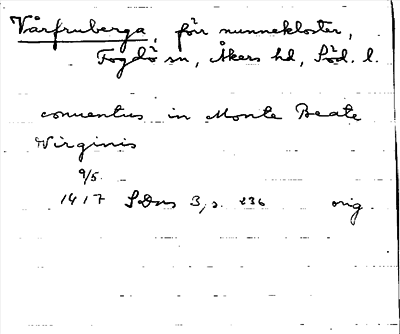 Vårfruberga, förr nunnekloster,
Fogdö sn, Åkers hd, Söd. l.
conuentus in Monte Beate
Virginis
9/5
1417 SDns 3, s. 236 orig.